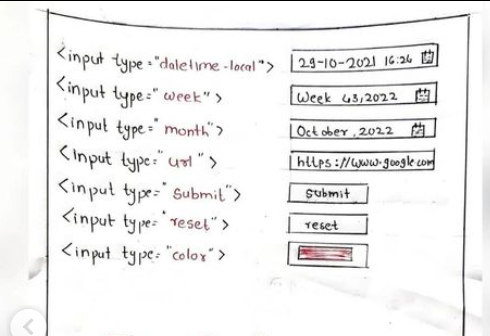 <input type="datetime-local"> 29-10-2021 16:26
<input type="week"> Week 43,2022
<input type="month"> October, 2022
<input type="url"> https://www.google.com
<input type="Submit"> Submit
<input type="reset"> reset
<input type="color">